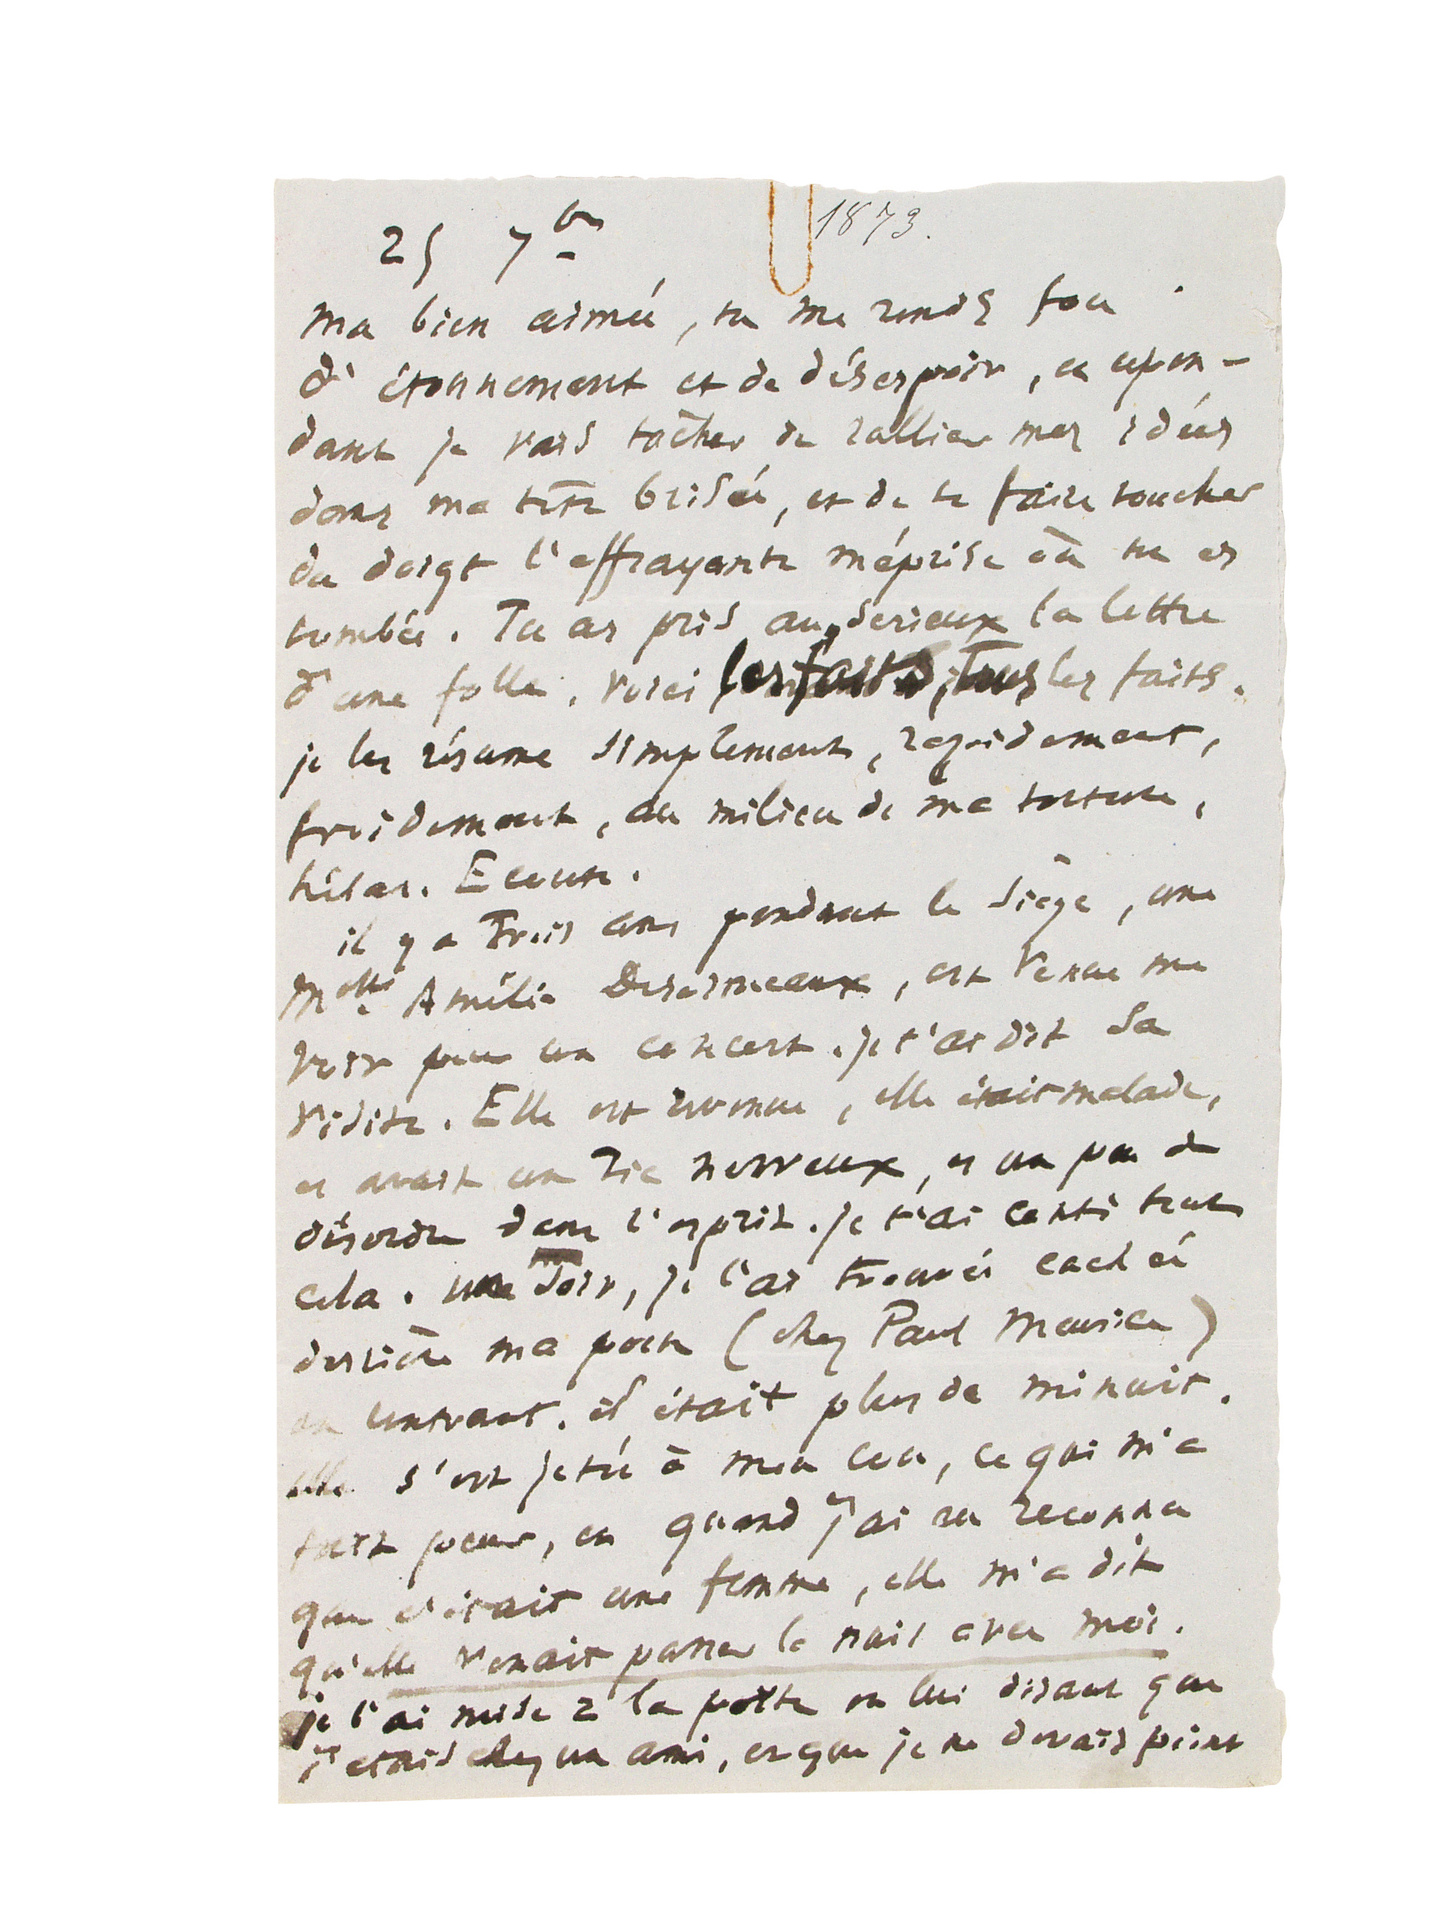 25 7bre 1873.
Ma bien aimée, tu me rends fou
d'étonnement et de désespoir, et cepen-
dant je vais tâcher de rallier mes idées
dans ma tête brisée, et de te faire toucher
du doigt l'effrayante méprise où tu es
tombée. Tu as pris au sérieux la lettre
d'une folle. Voici les faits, tous les faits.
je les résume simplement, rapidement,
froidement, au milieu de ma torture,
hélas. Ecoute.
il y a trois ans pendant le siège, une
Melle Amélie Desormeaux, est venue me
voir pour un concert. je t'ai dit sa
visite. Elle est revenue, elle était malade,
et avait un tic nerveux, et un peu de
désordre dans l'esprit. je t'ai conté tout
cela. un soir, je l'ai trouvée cachée
derrière ma porte (chez Paul Meurice)
en rentrant. il était plus de minuit.
elle s'est jetée à mon cou, ce qui m'a
fait peur, et quand j'ai eu reconnu
que c'était une femme, elle m'a dit
qu'elle venait passer la nuit avec moi.
je l'ai mise à la porte en lui disant que
j'étais chez un ami, et que je ne devais point